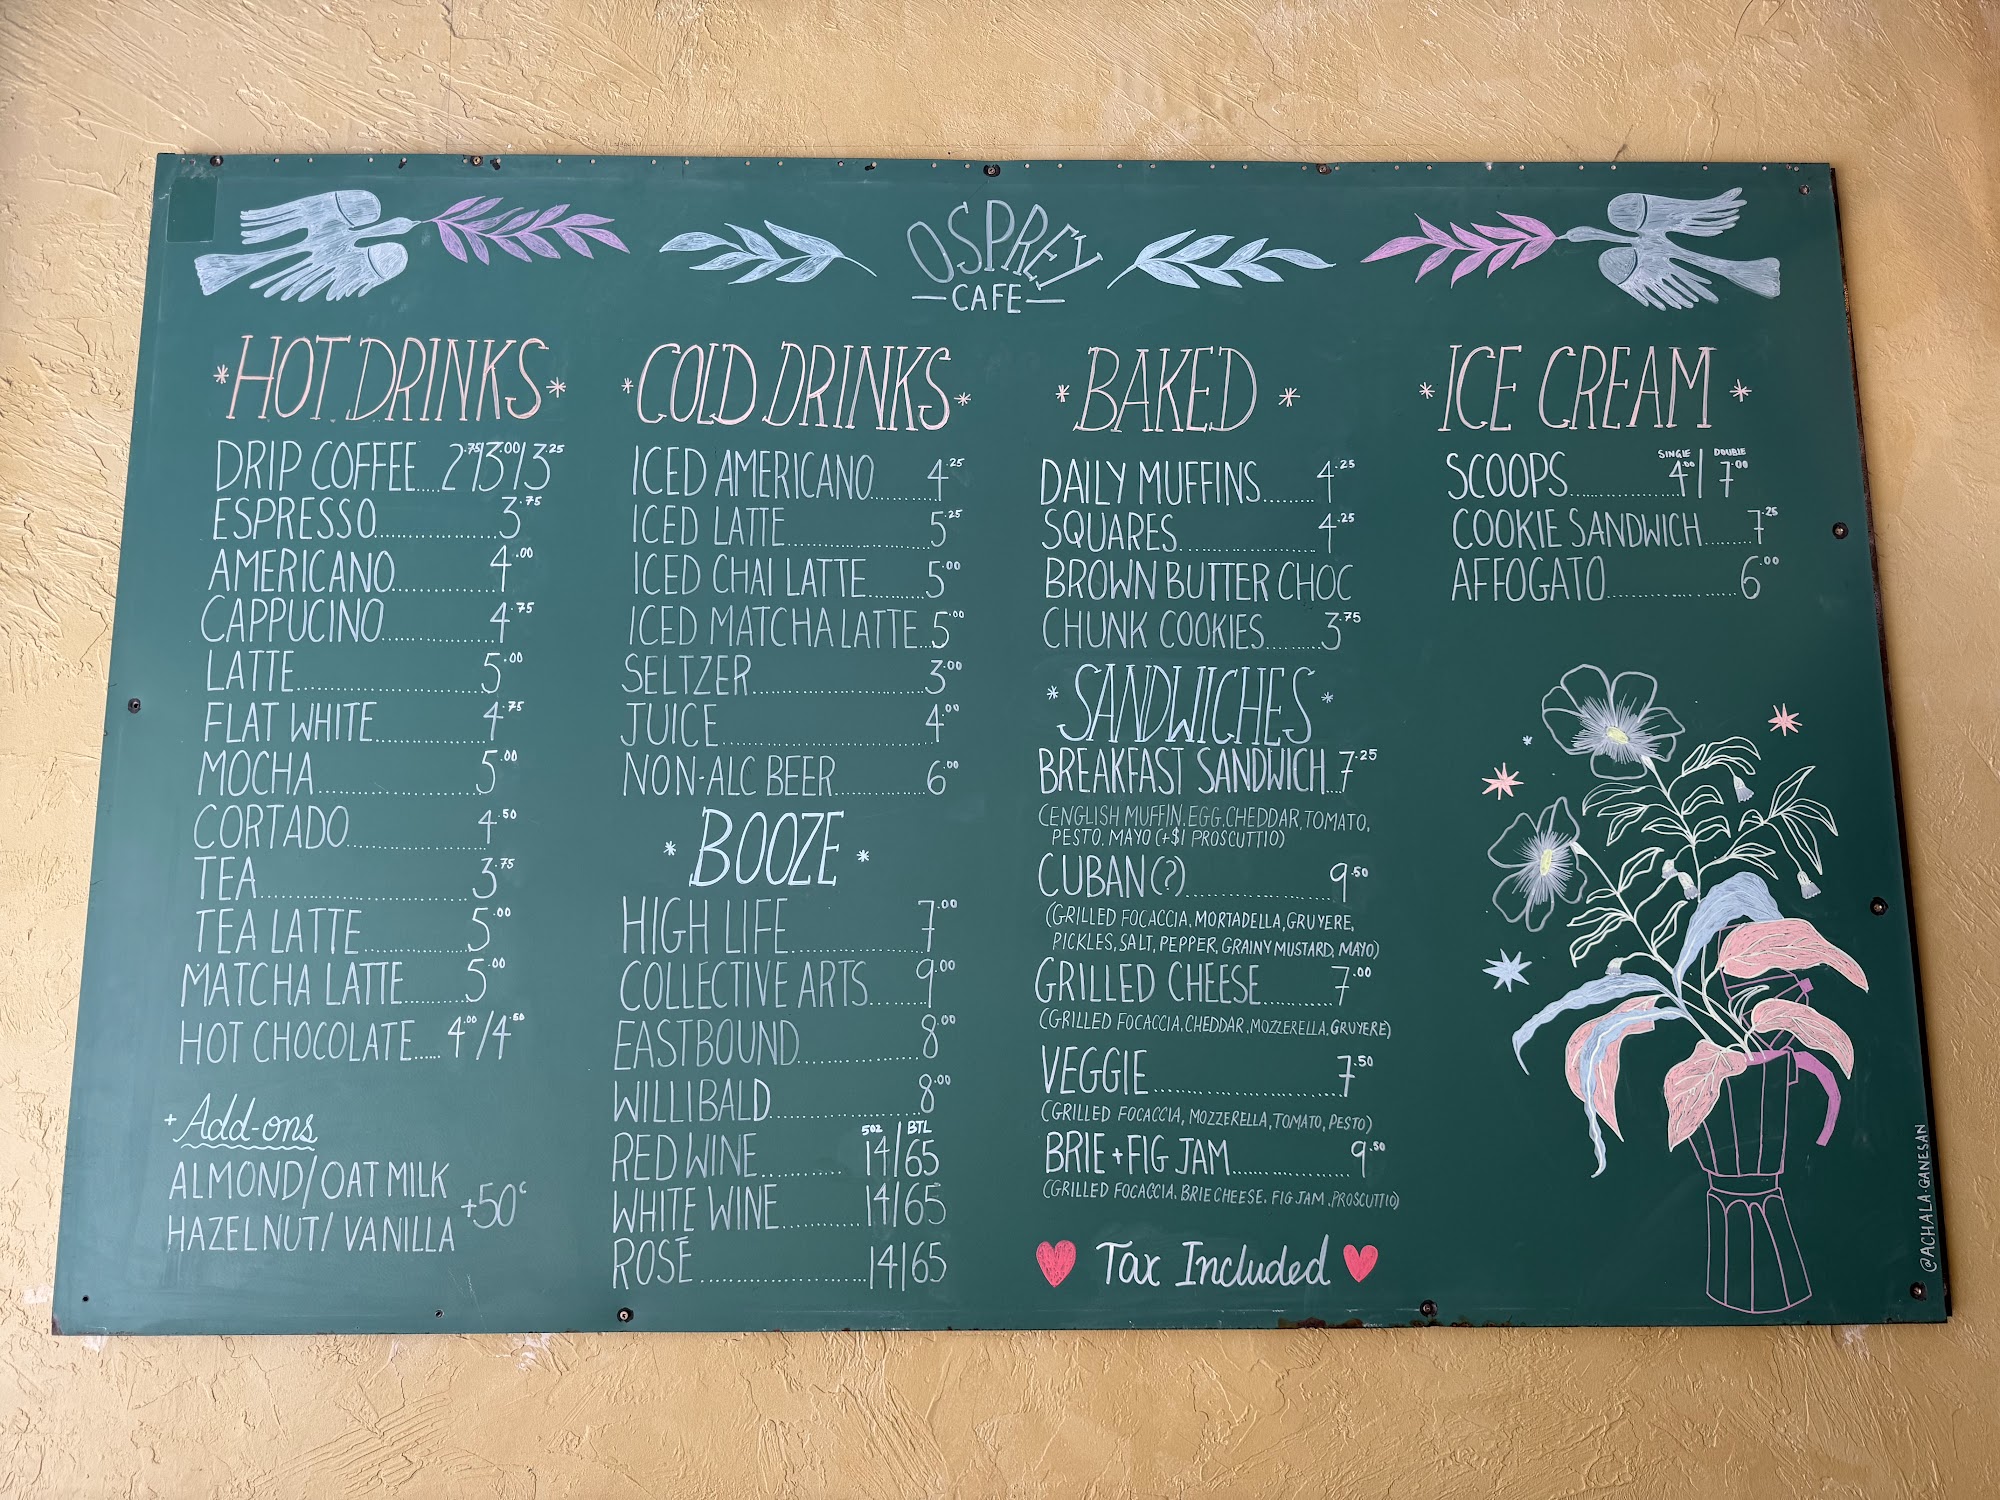 OSPREY
—CAFE—
*HOT DRINKS*
DRIP COFFEE.....2.75/3.00/3.25
ESPRESSO....................3.75
AMERICANO................4.00
CAPPUCINO................4.75
LATTE............................5.00
FLAT WHITE................4.75
MOCHA........................5.00
CORTADO....................4.50
TEA................................3.75
TEA LATTE..................5.00
MATCHA LATTE..........5.00
HOT CHOCOLATE.....4.00/4.50
+Add-ons
ALMOND/OAT MILK
HAZELNUT/VANILLA +50¢
*COLD DRINKS*
ICED AMERICANO..........4.25
ICED LATTE....................5.25
ICED CHAI LATTE..........5.00
ICED MATCHA LATTE..5.00
SELTZER..........................3.00
JUICE..............................4.00
NON-ALC BEER..............6.00
*BOOZE*
HIGH LIFE....................7.00
COLLECTIVE ARTS........9.00
EASTBOUND..................8.00
WILLIBALD....................8.00
5OZ BTL
RED WINE..........14/65
WHITE WINE..........14/65
ROSÉ......................14/65
*BAKED*
DAILY MUFFINS.......4.25
SQUARES..................4.25
BROWN BUTTER CHOC
CHUNK COOKIES..........3.75
*SANDWICHES*
BREAKFAST SANDWICH...7.25
(ENGLISH MUFFIN, EGG, CHEDDAR, TOMATO,
PESTO, MAYO (+$1 PROSCUTTIO)
CUBAN(?)....................9.50
(GRILLED FOCACCIA, MORTADELLA, GRUYERE,
PICKLES, SALT, PEPPER, GRAINY MUSTARD, MAYO)
GRILLED CHEESE..........7.00
(GRILLED FOCACCIA, CHEDDAR, MOZZERELLA, GRUYERE)
VEGGIE........................7.50
(GRILLED FOCACCIA, MOZZERELLA, TOMATO, PESTO)
BRIE+FIG JAM...............9.50
(GRILLED FOCACCIA, BRIE CHEESE, FIG JAM, PROSCUTTIO)
Tax Included
*ICE CREAM*
SINGLE DOUBLE
SCOOPS................4.00/7.00
COOKIE SANDWICH........7.25
AFFOGATO..................6.00
@ACHALA.GANESAN